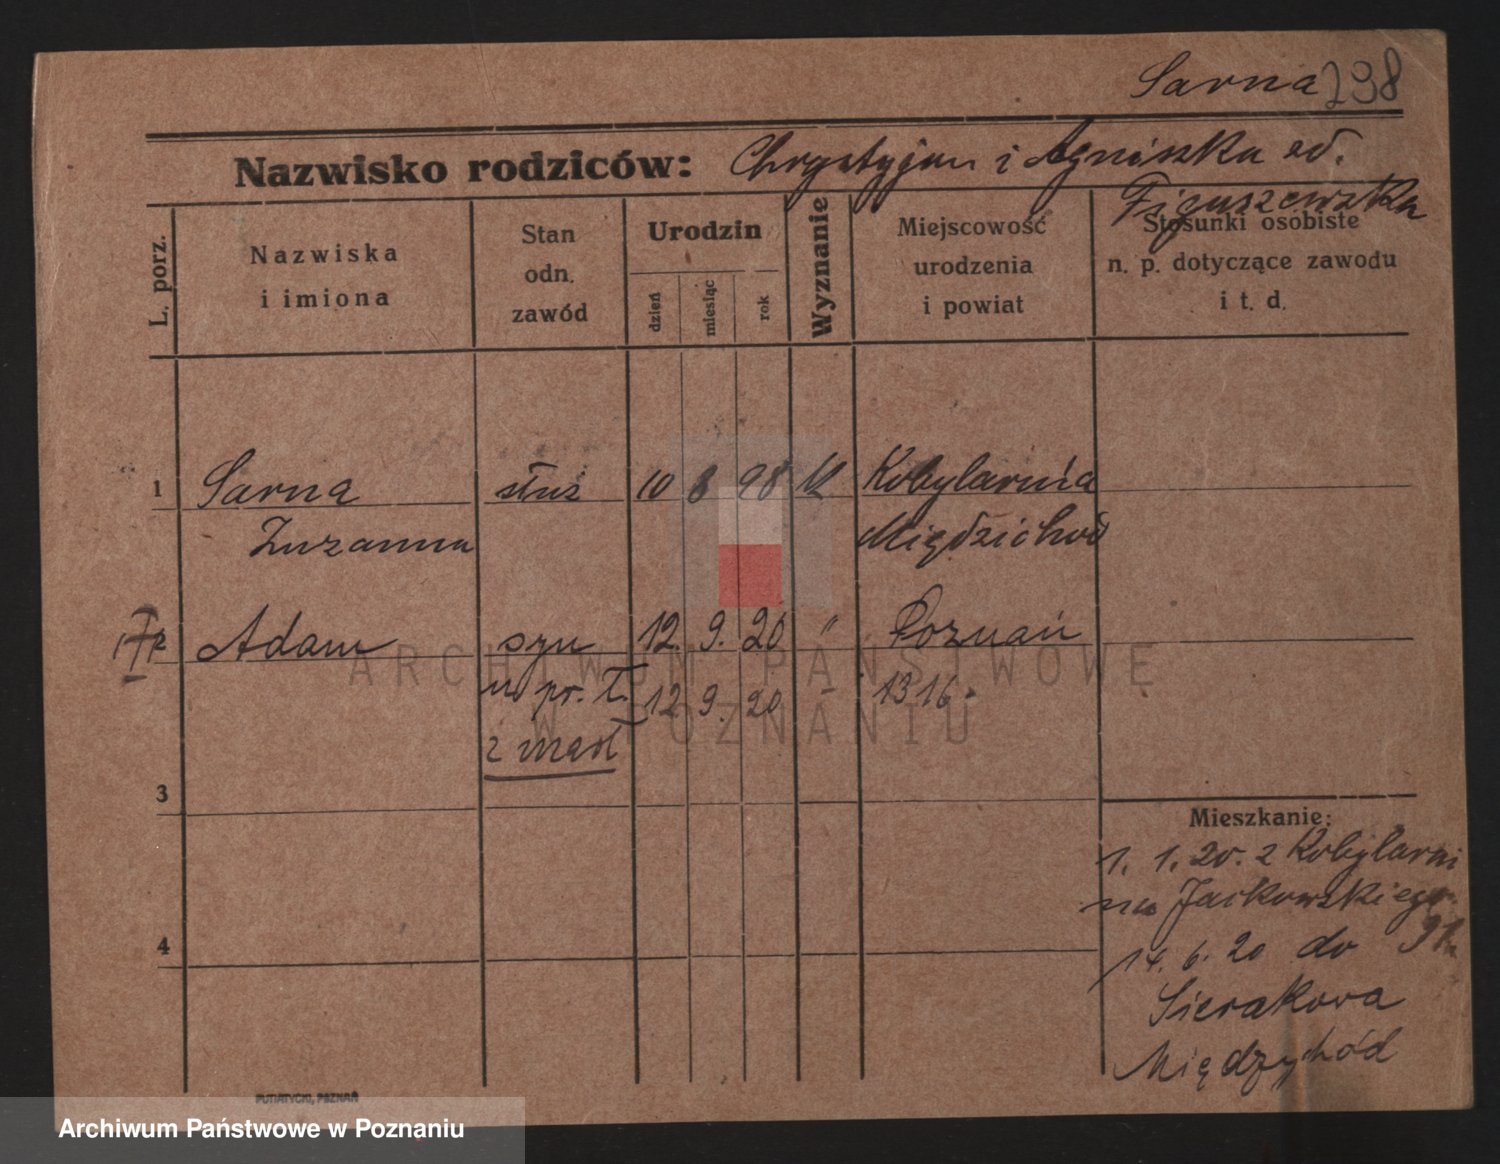 Sarna 298
Nazwisko rodziców: Chrystyjan i Agniszka od.
Figuszewska
L. porz.
Nazwiska
i imiona
Stan
odn.
zawód
Urodzin
dzień
miesiąc
rok
Wyznanie
Miejscowość
urodzenia
i powiat
Stosunki osobiste
n. p. dotyczące zawodu
i t. d.
1 Sarna służ 10 8 98 kt Kobylarnia
Zuzanna Międzichód
2 Adam syn 12. 9. 20 " Poznań
u pr. T. 12 9. 20 - 1316.
z matł
3
4
Mieszkanie:
1. 1. 20. z Kobylarni
na Jackowskiego
14. 6. 20 do
Sierakowa
Międzychód
PUTIATYCKI, POZNAŃ
ARCHIWUM PAŃSTWOWE
W POZNANIU
Archiwum Państwowe w Poznaniu